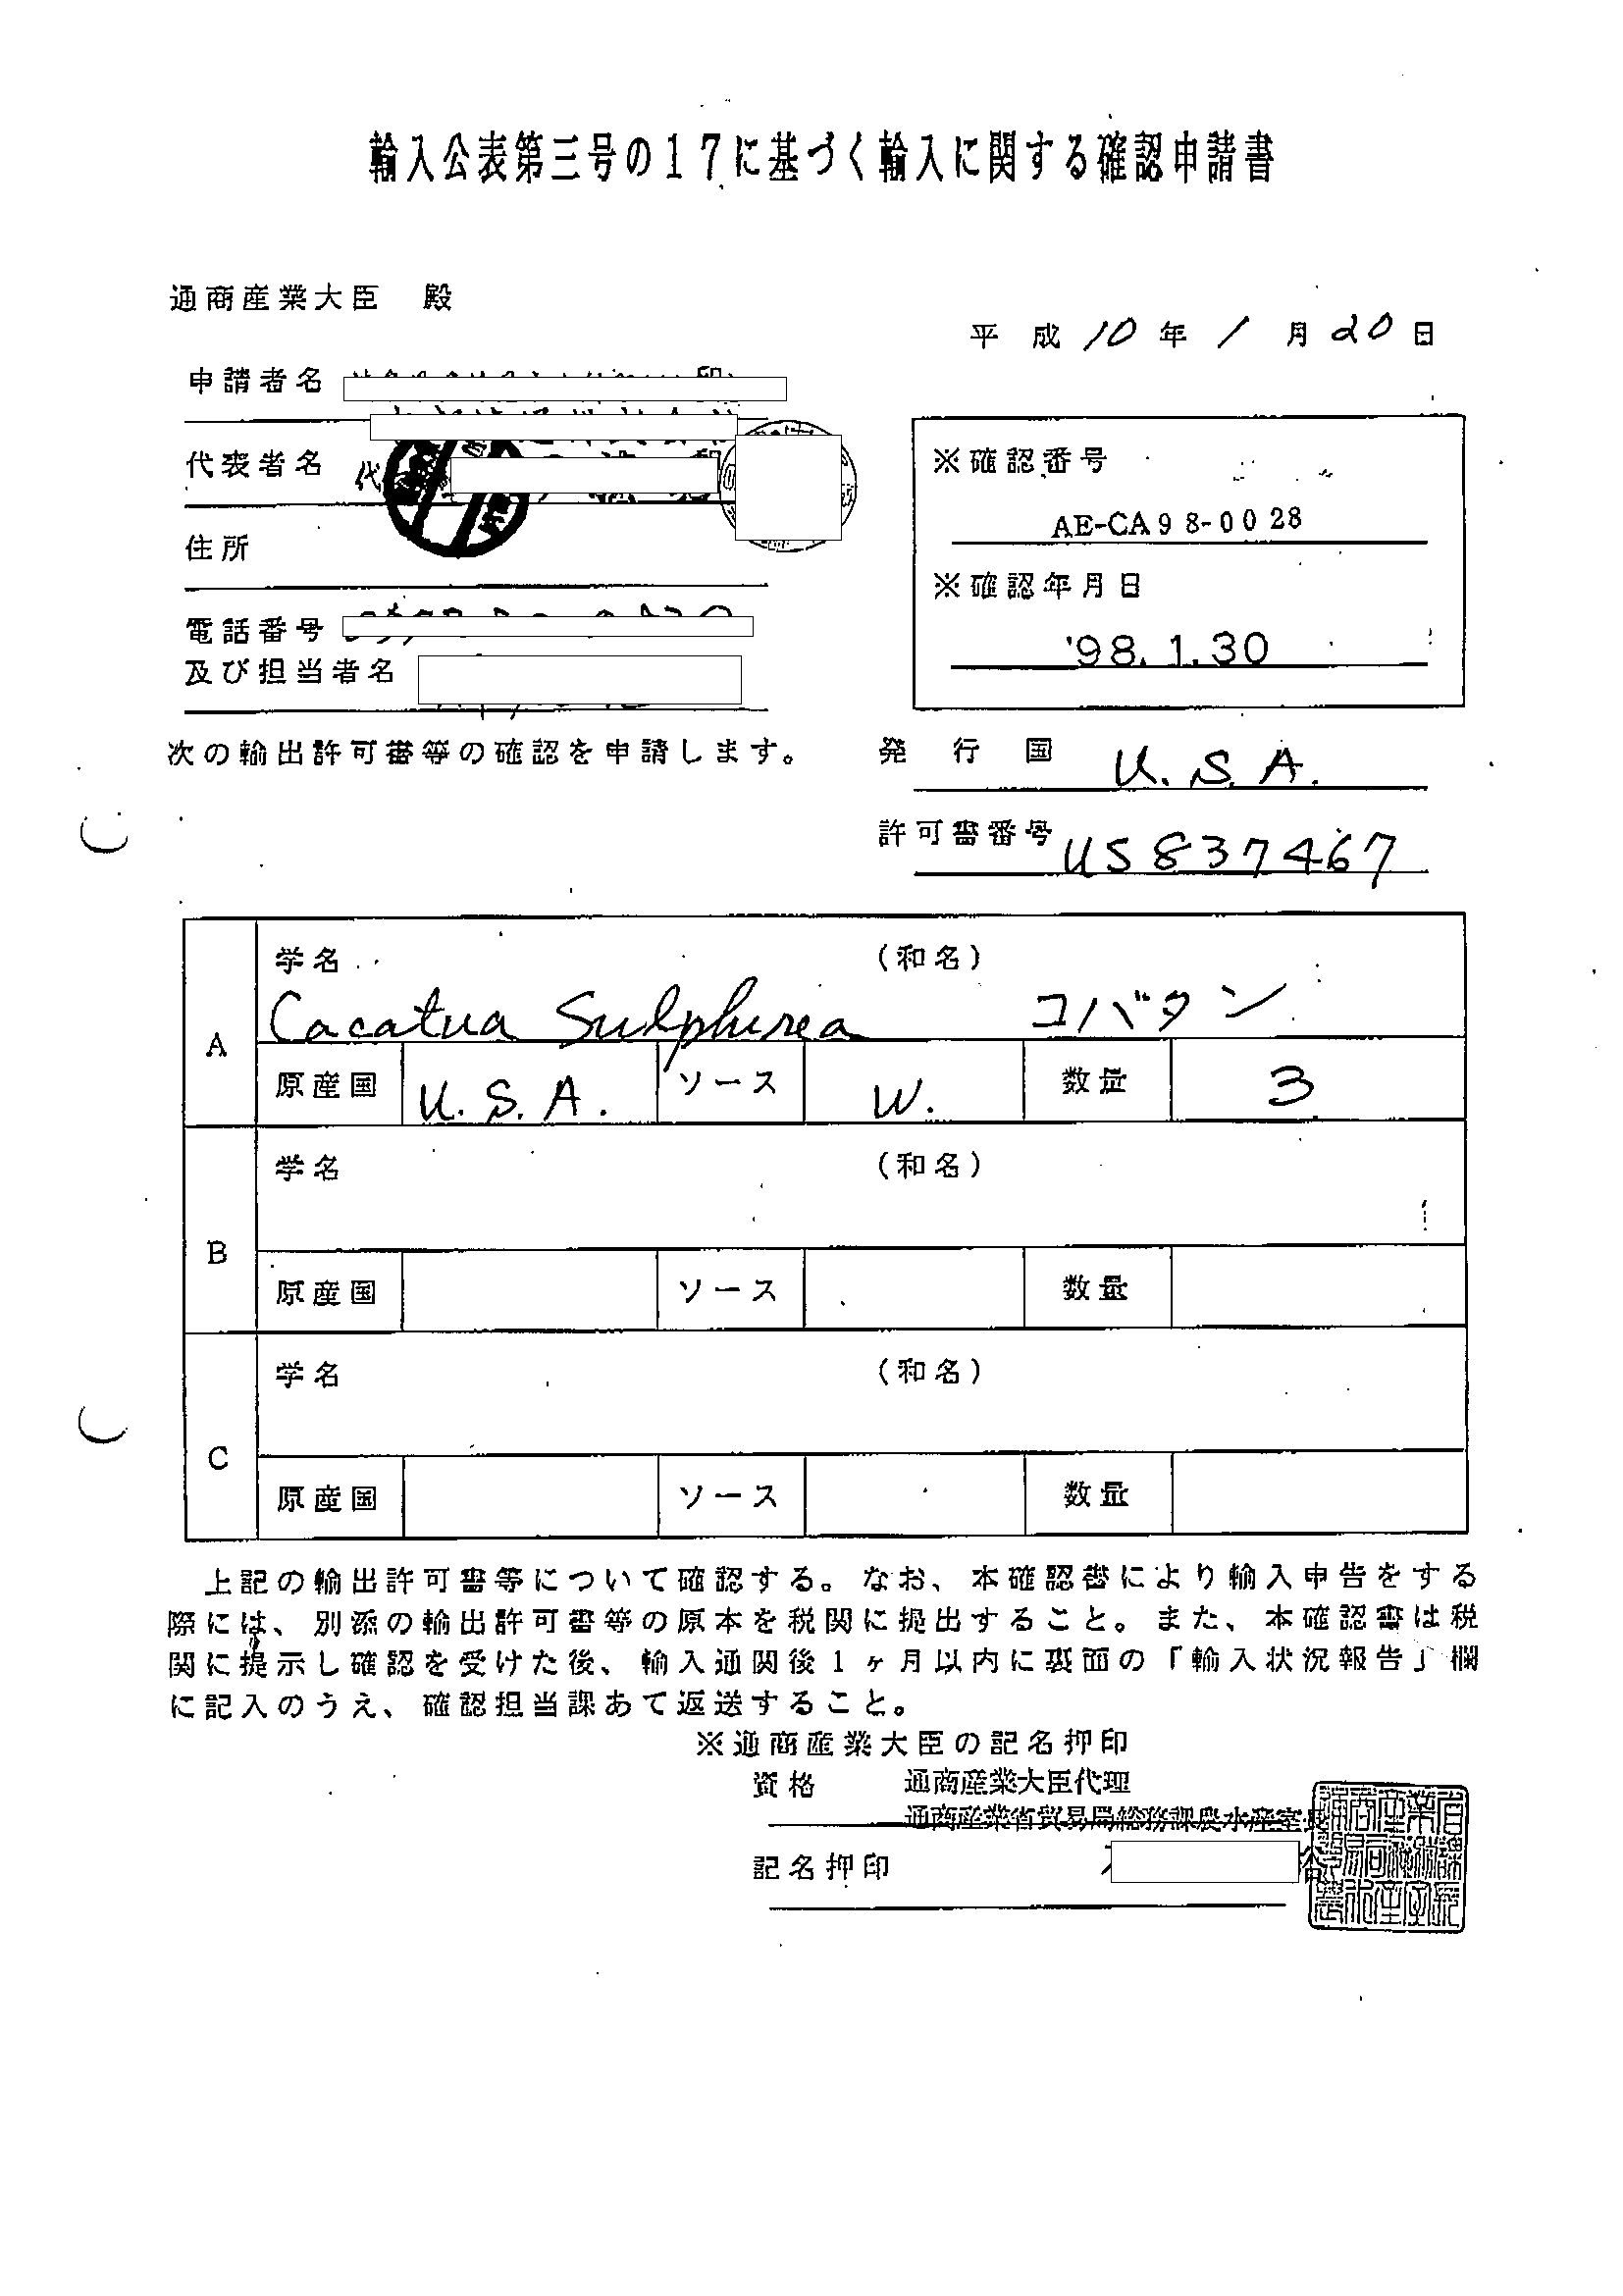 輸入公表第三号の17に基づく輸入に関する確認申請書
通商産業大臣 殿
平成 10 年 1 月 20 日
申請者名
代表者名 代
住所
電話番号
及び担当者名
※確認番号
AE-CA98-0028
※確認年月日
'98.1.30
次の輸出許可書等の確認を申請します。
発行国 U.S.A.
許可書番号 US837467
A
学名 (和名)
Cacatua Sulphurea コバタン
原産国 U.S.A. ソース W. 数量 3
B
学名 (和名)
原産国 ソース 数量
C
学名 (和名)
原産国 ソース 数量
上記の輸出許可書等について確認する。なお、本確認書により輸入申告をする
際には、別添の輸出許可書等の原本を税関に提出すること。また、本確認書は税
関に提示し確認を受けた後、輸入通関後1ヶ月以内に裏面の「輸入状況報告」欄
に記入のうえ、確認担当課あて返送すること。
※通商産業大臣の記名押印
資格 通商産業大臣代理
通商産業省貿易局総務課農水産室長
記名押印